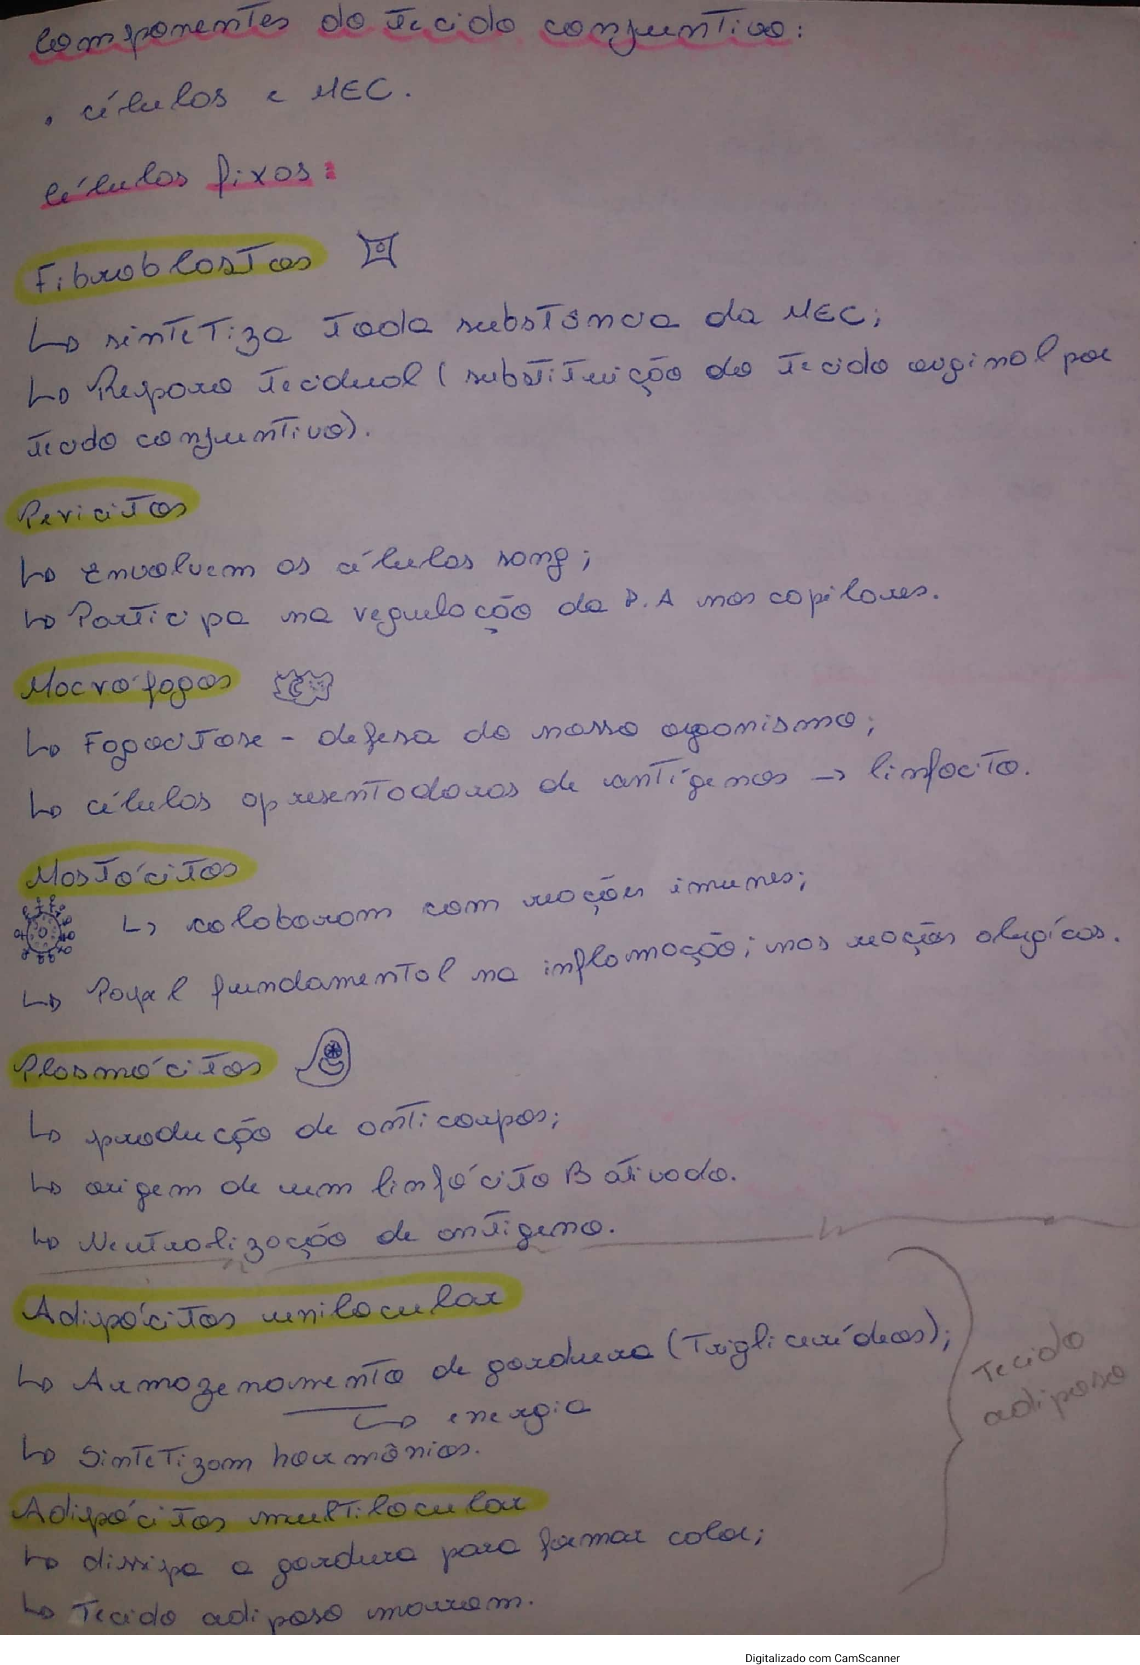 Componentes do tecido conjuntivo:
. células e MEC.
Células fixas:
Fibroblastos
↳ sintetiza toda substância da MEC;
↳ Reparo tecidual (substituição do tecido original por
tecido conjuntivo).
Pericitos
↳ Envolvem as células sang;
↳ Participa na regulação da P.A nos capilares.
Macrófagos
↳ Fagocitose - defesa do nosso organismo;
↳ células apresentadoras de antígenos → linfocito.
Mastócitos
↳ colaboram com reações imunes;
↳ Papel fundamental na inflamação; nas reações alergícas.
Plasmócitos
↳ produção de anticorpos;
↳ origem de um linfócito B ativado.
↳ Neutralização de antígeno.
Adipócitos unilocular
↳ Armazenamento de gordura (Triglicerídeos);
↳ energia
↳ Sintetizam hormônios.
Tecido
adiposo
Adipócitos multilocular
↳ dissipa a gordura para formar calor;
↳ Tecido adiposo marrom.
Digitalizado com CamScanner